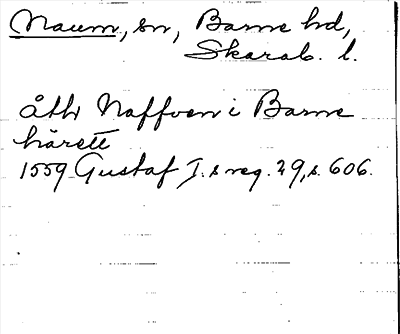 Naum, sn, Barne hd,
Skarab. l.
åth Naffven i Barne
härett
1559 Gustaf I.s reg. 29, s. 606.